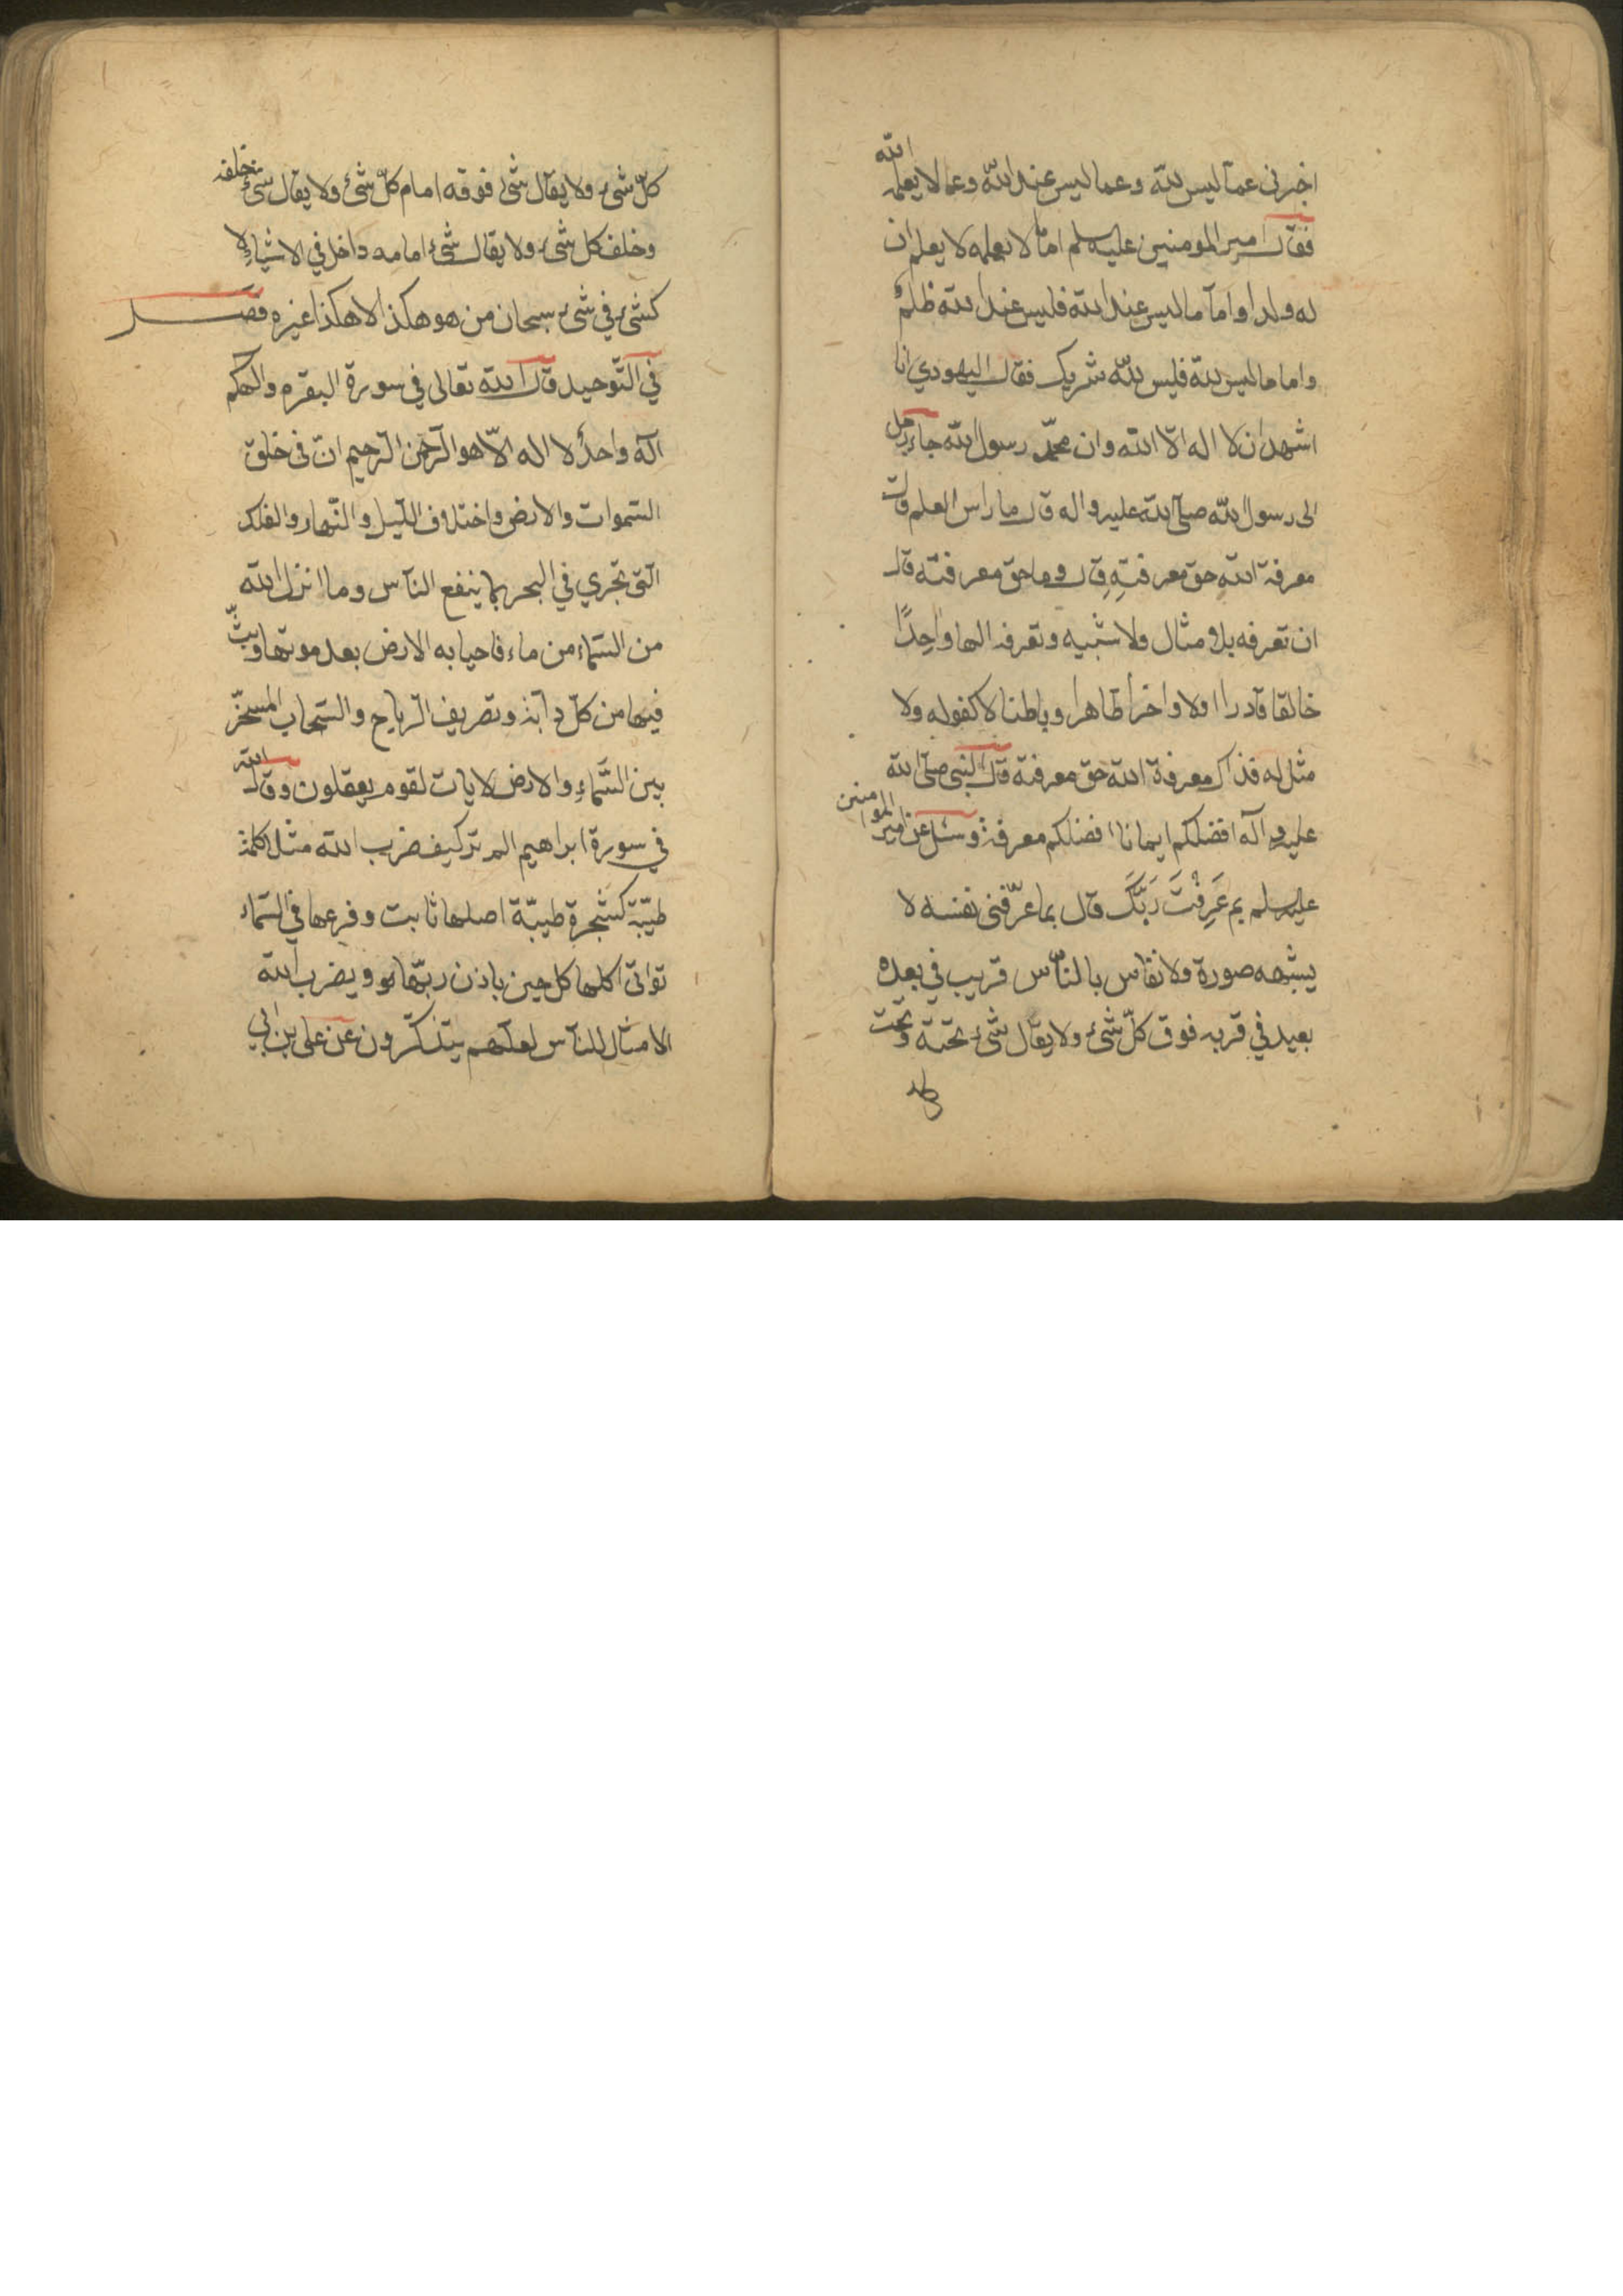 اخبرنى عمّا ليس لله وعما ليس عند الله وعما لا يعلمه الله
فقال امير المومنين عليه سلم اما ما لا يعلمه لا يعلم ان
له ولدا واما ما ليس عند الله فليس عند الله ظلم
واما ما ليس لله فليس لله شريك فقال اليهودي انا
اشهد ان لا اله الّا الله وان محمّد رسول الله جاء رجل
الى رسول الله صلى الله عليه واله قال ما راس العلم قال
معرفة الله حق معرفتِهِ قال وما حق معرفته قال
ان تعرفه بلا مثال ولا شبيه وتعرفه الها واحِدًا
خالقا قادرا اولا واخرا ظاهرا وباطنا لا كفو له ولا
مثل له فذاك معرفة الله حق معرفته قال النبى صلى الله
عليه وآله افضلكم ايمانا افضلكم معرفة وسئل عن امير المومنين
عليه سلم بم عَرِفْتَ رَبَّكَ قال بما عرّفنى نفسه لا
يشبهه صورة ولا تقاس بالنّاس قريب في بعده
بعيد في قربه فوق كلّ شئ ولا يقال شئ تحته وتحت
كلّ شئ ولا يقال شئ فوقه امام كلّ شئ ولا يقال شئ خلفه
وخلف كل شئ ولا يقال شئ امامه داخل في الاشياء لا
كشئ في شئ سبحان من هو هكذا لا هكذا غيره فصل
في التّوحيد قال الله تعالى في سورة البقره والهكم
آله واحدٌ لا اله الّا هو الرّحمن الرّحيم انّ فى خلق
السّموات والارض واختلاف اللّيل والنّهار والفلك
الّتى تجري في البحر بما ينفع النّاس وما انزل الله
من السّماء من ماء فاحيا به الارض بعد موتها وبثّ
فيها من كلّ دابّة وتصريف الرّياح والسّحاب المسخّر
بين السّماءِ والارض لايات لقوم يعقلون وقال الله
في سورة ابراهيم الم تر كيف ضرب الله مثلا كلمة
طيّبة كشجرة طيبّة اصلها ثابت وفرعها في السّماء
تؤاتى اكلها كل حين باذن ربّها ويضرب الله
الامثال للنّاس لعلّهم يتذكّرون عن على بن ابي